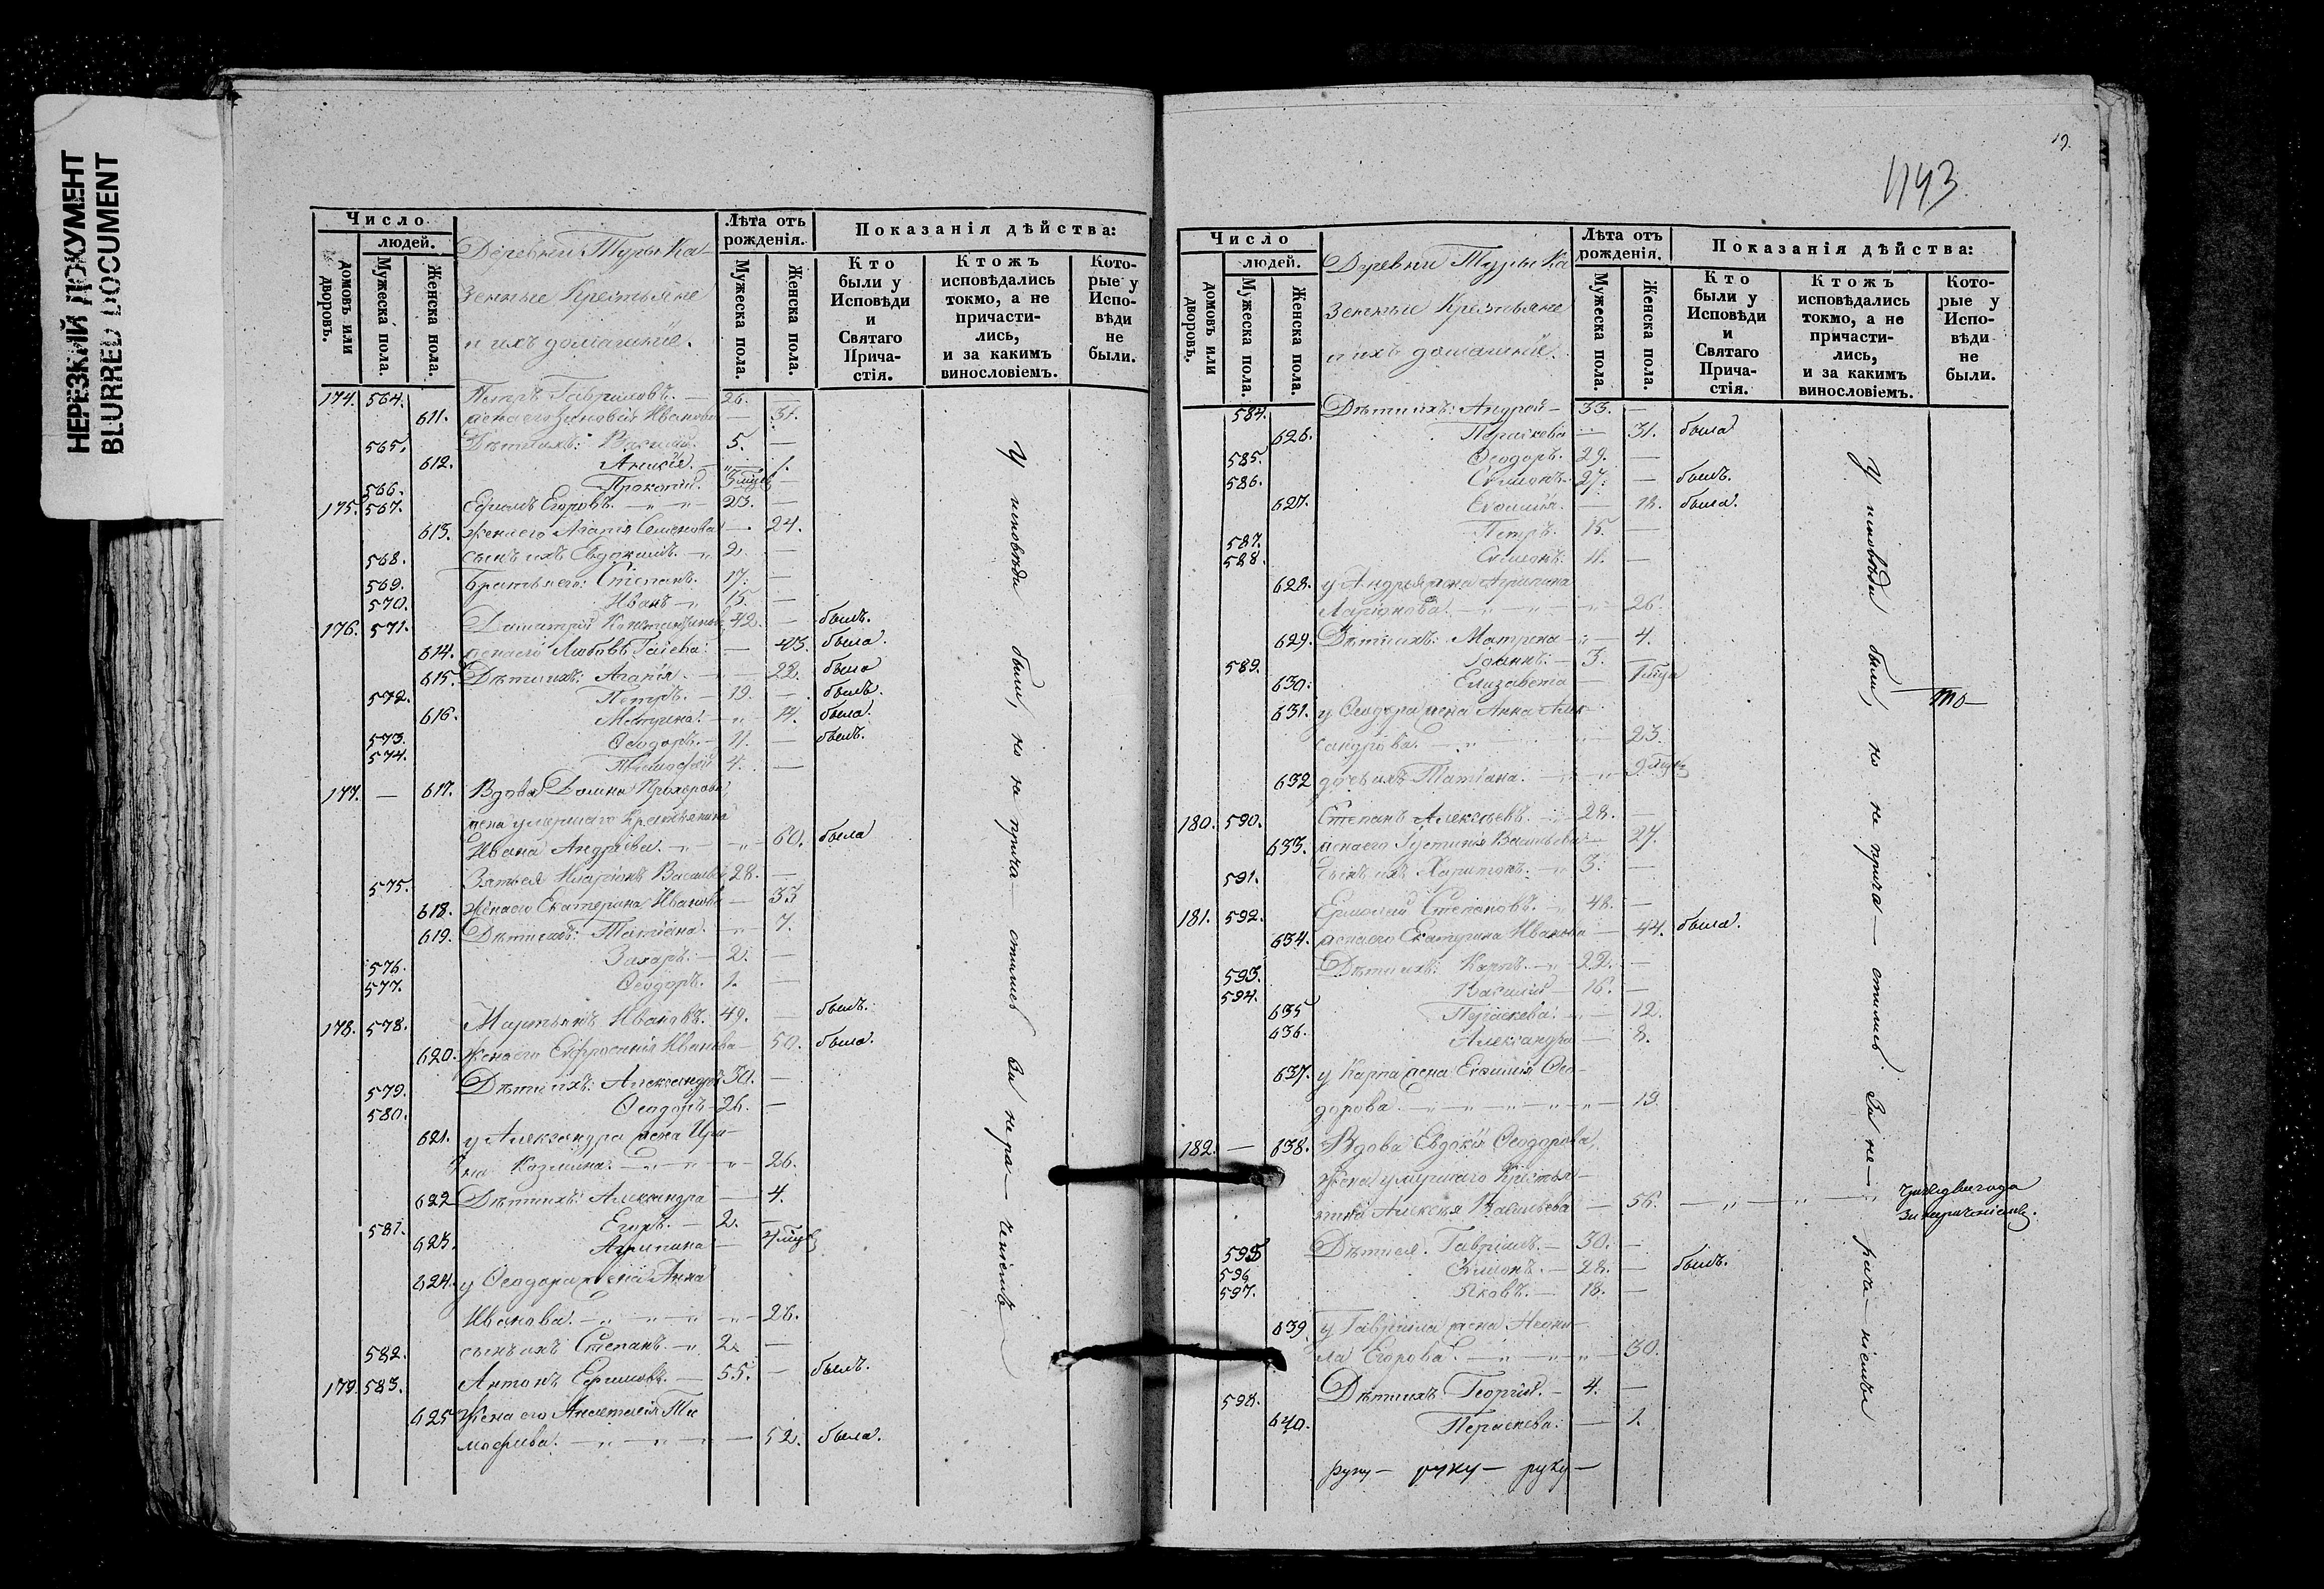 НЕРЕЗКИЙ ДОКУМЕНТ
BLURRED DOCUMENT
Число
людей.
домовъ или дворовъ.
Мужеска пола.
Женска пола.
Деревни Туры Ка-
зенные Крестьяне
и ихъ домашніе.
Лѣта отъ рожденія.
Мужеска пола.
Женска пола.
Показанія дѣйства:
Кто были у Исповѣди и Святаго Прича-стія.
Ктожъ исповѣдались токмо, а не причасти-лись, и за какимъ винословіемъ.
Кото-рые у Испо-вѣди не были.
174. 564. Петръ Гавриловъ. — 26. —
611. жена его Зиновія Иванова — 31.
565. Дѣти ихъ: Василій. 5. —
612. — 1.
566. Прокопій. 3 мцв —
175. 567. Ефимъ Егоровъ. — 23. —
613. жена его Агапія Семенова — 24.
568. сынъ ихъ Евдокимъ. — 2. —
569. братья его: Степанъ. 17. —
570. Иванъ — 15. —
176. 571. Димитрій Константиновъ 42. — былъ.
614. жена его Любовь Гаіева. — 43. была
615. Дѣти ихъ: Агапія. — 22. была
572. Петръ. — 19. — былъ.
616. Матрина. — 14. была.
573. Ѳеодоръ. — 11. — былъ.
574. Тимофей 4. —
177. — 617. Вдова Домна Прохорова
жена умершаго Крестьянина
Ивана Андріева. — 60. была
575. Зять ея Иларіонъ Васильевъ 28. —
618. жена его Екатерина Иванова — 33
619. Дѣти ихъ: Татіана. — 7.
576. Захаръ. — 2. —
577. Ѳеодоръ. 1. —
178. 578. Мартынъ Ивановъ. 49. — былъ.
620. жена его Евфросинія Иванова — 50. была.
579. Дѣти ихъ: Александръ 30. —
580. Ѳеодоръ — 26. —
621. у Александра жена Ири-
на Козмина. — 26.
622 Дѣти ихъ: Александра — 4.
581. Егоръ. — 2. —
623. Агрипина — 4 мцв
624. у Ѳеодора жена Анна
Иванова. — 26.
582. сынъ ихъ Степанъ. — 2. —
179. 583. Антонъ Ефимовъ. — 55. — былъ.
625 Жена его Анастасія Ти
мофиева. — 52. была.
У исповѣди были, но не прича— стились За нера— ченіемъ
19.
1143
Число
людей.
домовъ или дворовъ.
Мужеска пола.
Женска пола.
Деревни Туры Ка
зенные Крестьяне
и ихъ домашніе.
Лѣта отъ рожденія.
Мужеска пола.
Женска пола.
Показанія дѣйства:
Кто были у Исповѣди и Святаго Прича-стія.
Ктожъ исповѣдались токмо, а не причасти-лись, и за какимъ винословіемъ.
Кото-рые у Испо-вѣди не были.
584. Дѣти ихъ: Андрей — 33. —
626. Параскева — 31. была
585. Ѳеодоръ. 29. —
586. Симонъ. 27. — былъ.
627. Евѳимія. — 18. была.
587. Петръ. 15. —
588. Симонъ. 11. —
628. у Андрея жена Агрипина
Ларіонова. — 26.
629. Дѣти ихъ: Матрена — 4.
589. Іоаннъ. — 3. —
630. Елизавета —
631. у Ѳеодора жена Анна Алек-
сандрова. — 23.
632 дочь ихъ Татіана. —
180. 590. Степанъ Алексѣевъ. — 28. —
633. жена его Іустинія Васильева — 27.
591. сынъ ихъ Харитонъ. — 3. —
181. 592. Ермолай Степановъ. — 48. —
634. жена его Екатерина Иванова — 44. была.
593. Дѣти ихъ: Карпъ. — 22. —
594. Василій — 16. —
635 Параскева. — 12.
636. Александра — 8.
637. у Карпа жена Евѳимія Ѳео-
дорова. — 19.
182. — 638. Вдова Евдокія Ѳеодорова,
жена умершаго Крестья-
нина Алексія Васильева — 56. —
595 Дѣти ея. Гавріилъ. — 30. —
596 Симонъ. — 28. — былъ.
597. Яковъ. — 18. —
639 у Гавріила жена Неони-
ла Егорова. — 30.
598. Дѣти ихъ Георгій. — 4. —
640. Параскева. — 1.
У исповѣди были, но не прича— стились За не— раче— ніемъ
руку — руку — руку —